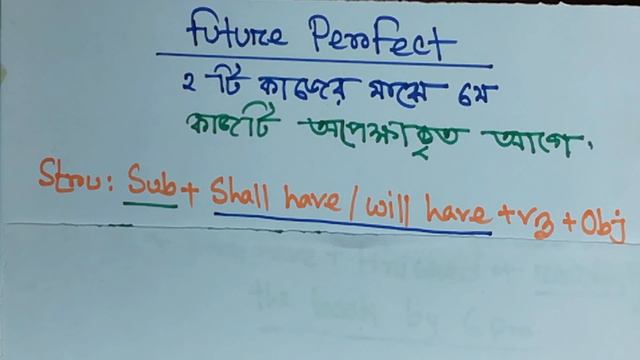 Future Perfect
২ টি কাজের মাঝে যে
কাজটি অপেক্ষাকৃত আগে.
Stru: Sub + Shall have / will have + v3 + Obj
the book by 6 pm